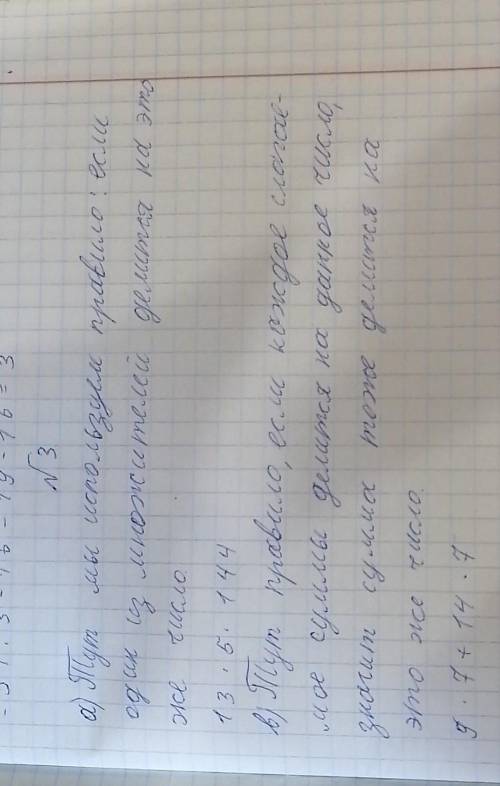 = 51 : 3 - 16 = 19 - 16 = 3
№3
а) Тут мы используем правило: если
один из множителей делится на это
же число.
13 · 5 · 144
в) Тут правило, если каждое слагае-
мое суммы делится на данное число,
значит сумма тоже делится на
это же число.
9 · 7 + 14 · 7